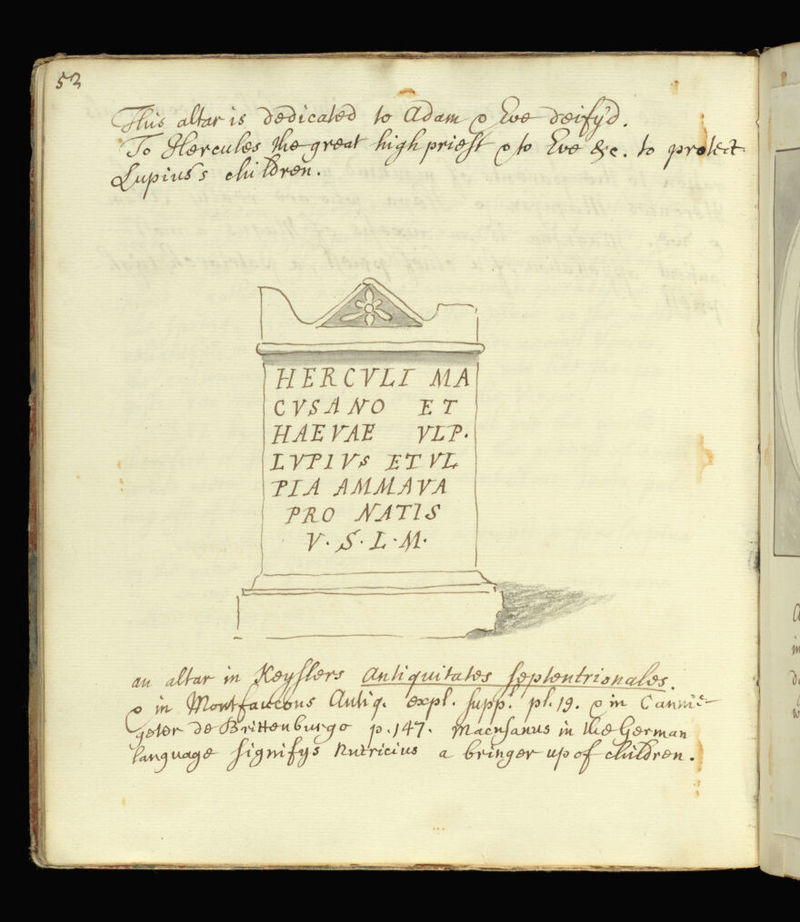 52
This altar is dedicated to Adam & Eve deify'd.
To Hercules the great high priest & to Eve &c. to protect
Lupius's children.
HERCVLI MA
CVSANO ET
HAEVAE VLP.
LVPIVS ET VL
PIA AMMAVA
PRO NATIS
V. S. L. M.
an altar in Keyslers Antiquitates septentrionales.
& in Montfaucons Antiq. expl. supp. pl. 19. & in Cannie
geter de Brittenburgo p. 147. Macusanus in the German
language signifys Nutricius a bringer up of children.